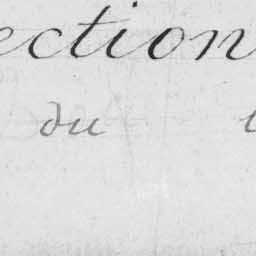 ection
du